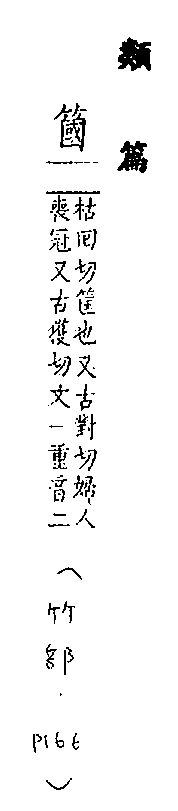 類篇
簂
枯回切筐也又古對切婦人
喪冠又古獲切文一重音二
(竹部.P166)